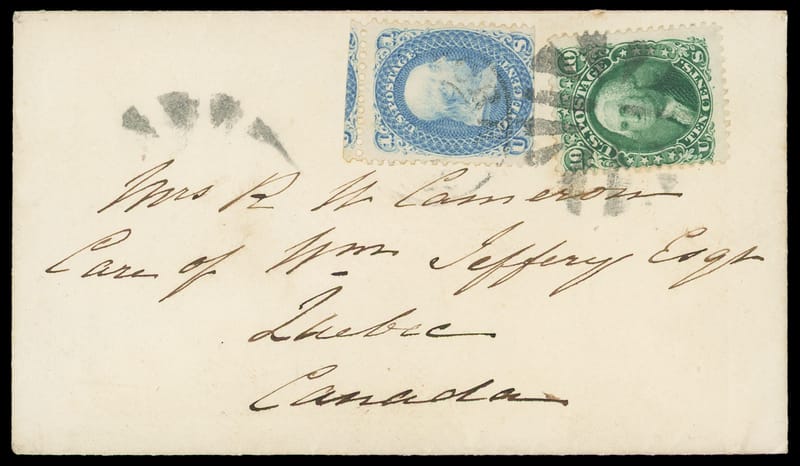 U.S. POSTAGE
ONE CENT.
U.S. POSTAGE
TEN CENTS
10 10
U S
Mrs R W Cameron
Care of Wm Jeffery Esqr
Quebec
Canada